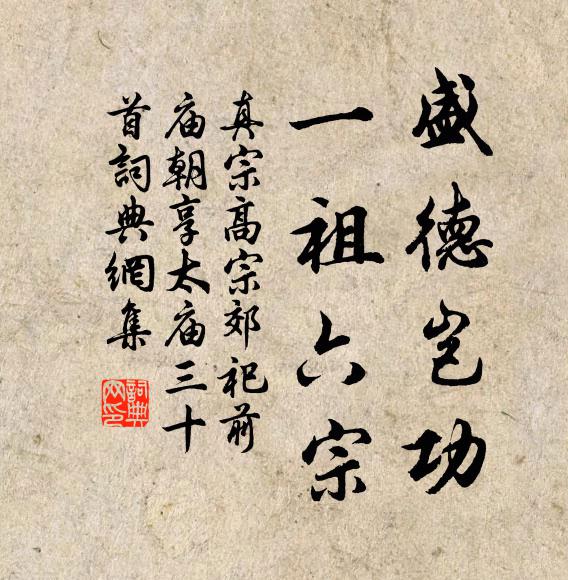 盛德岂功
一祖六宗
真宗高宗郊祀前
庙朝享太庙三十
首詞典網集
詞典
网印